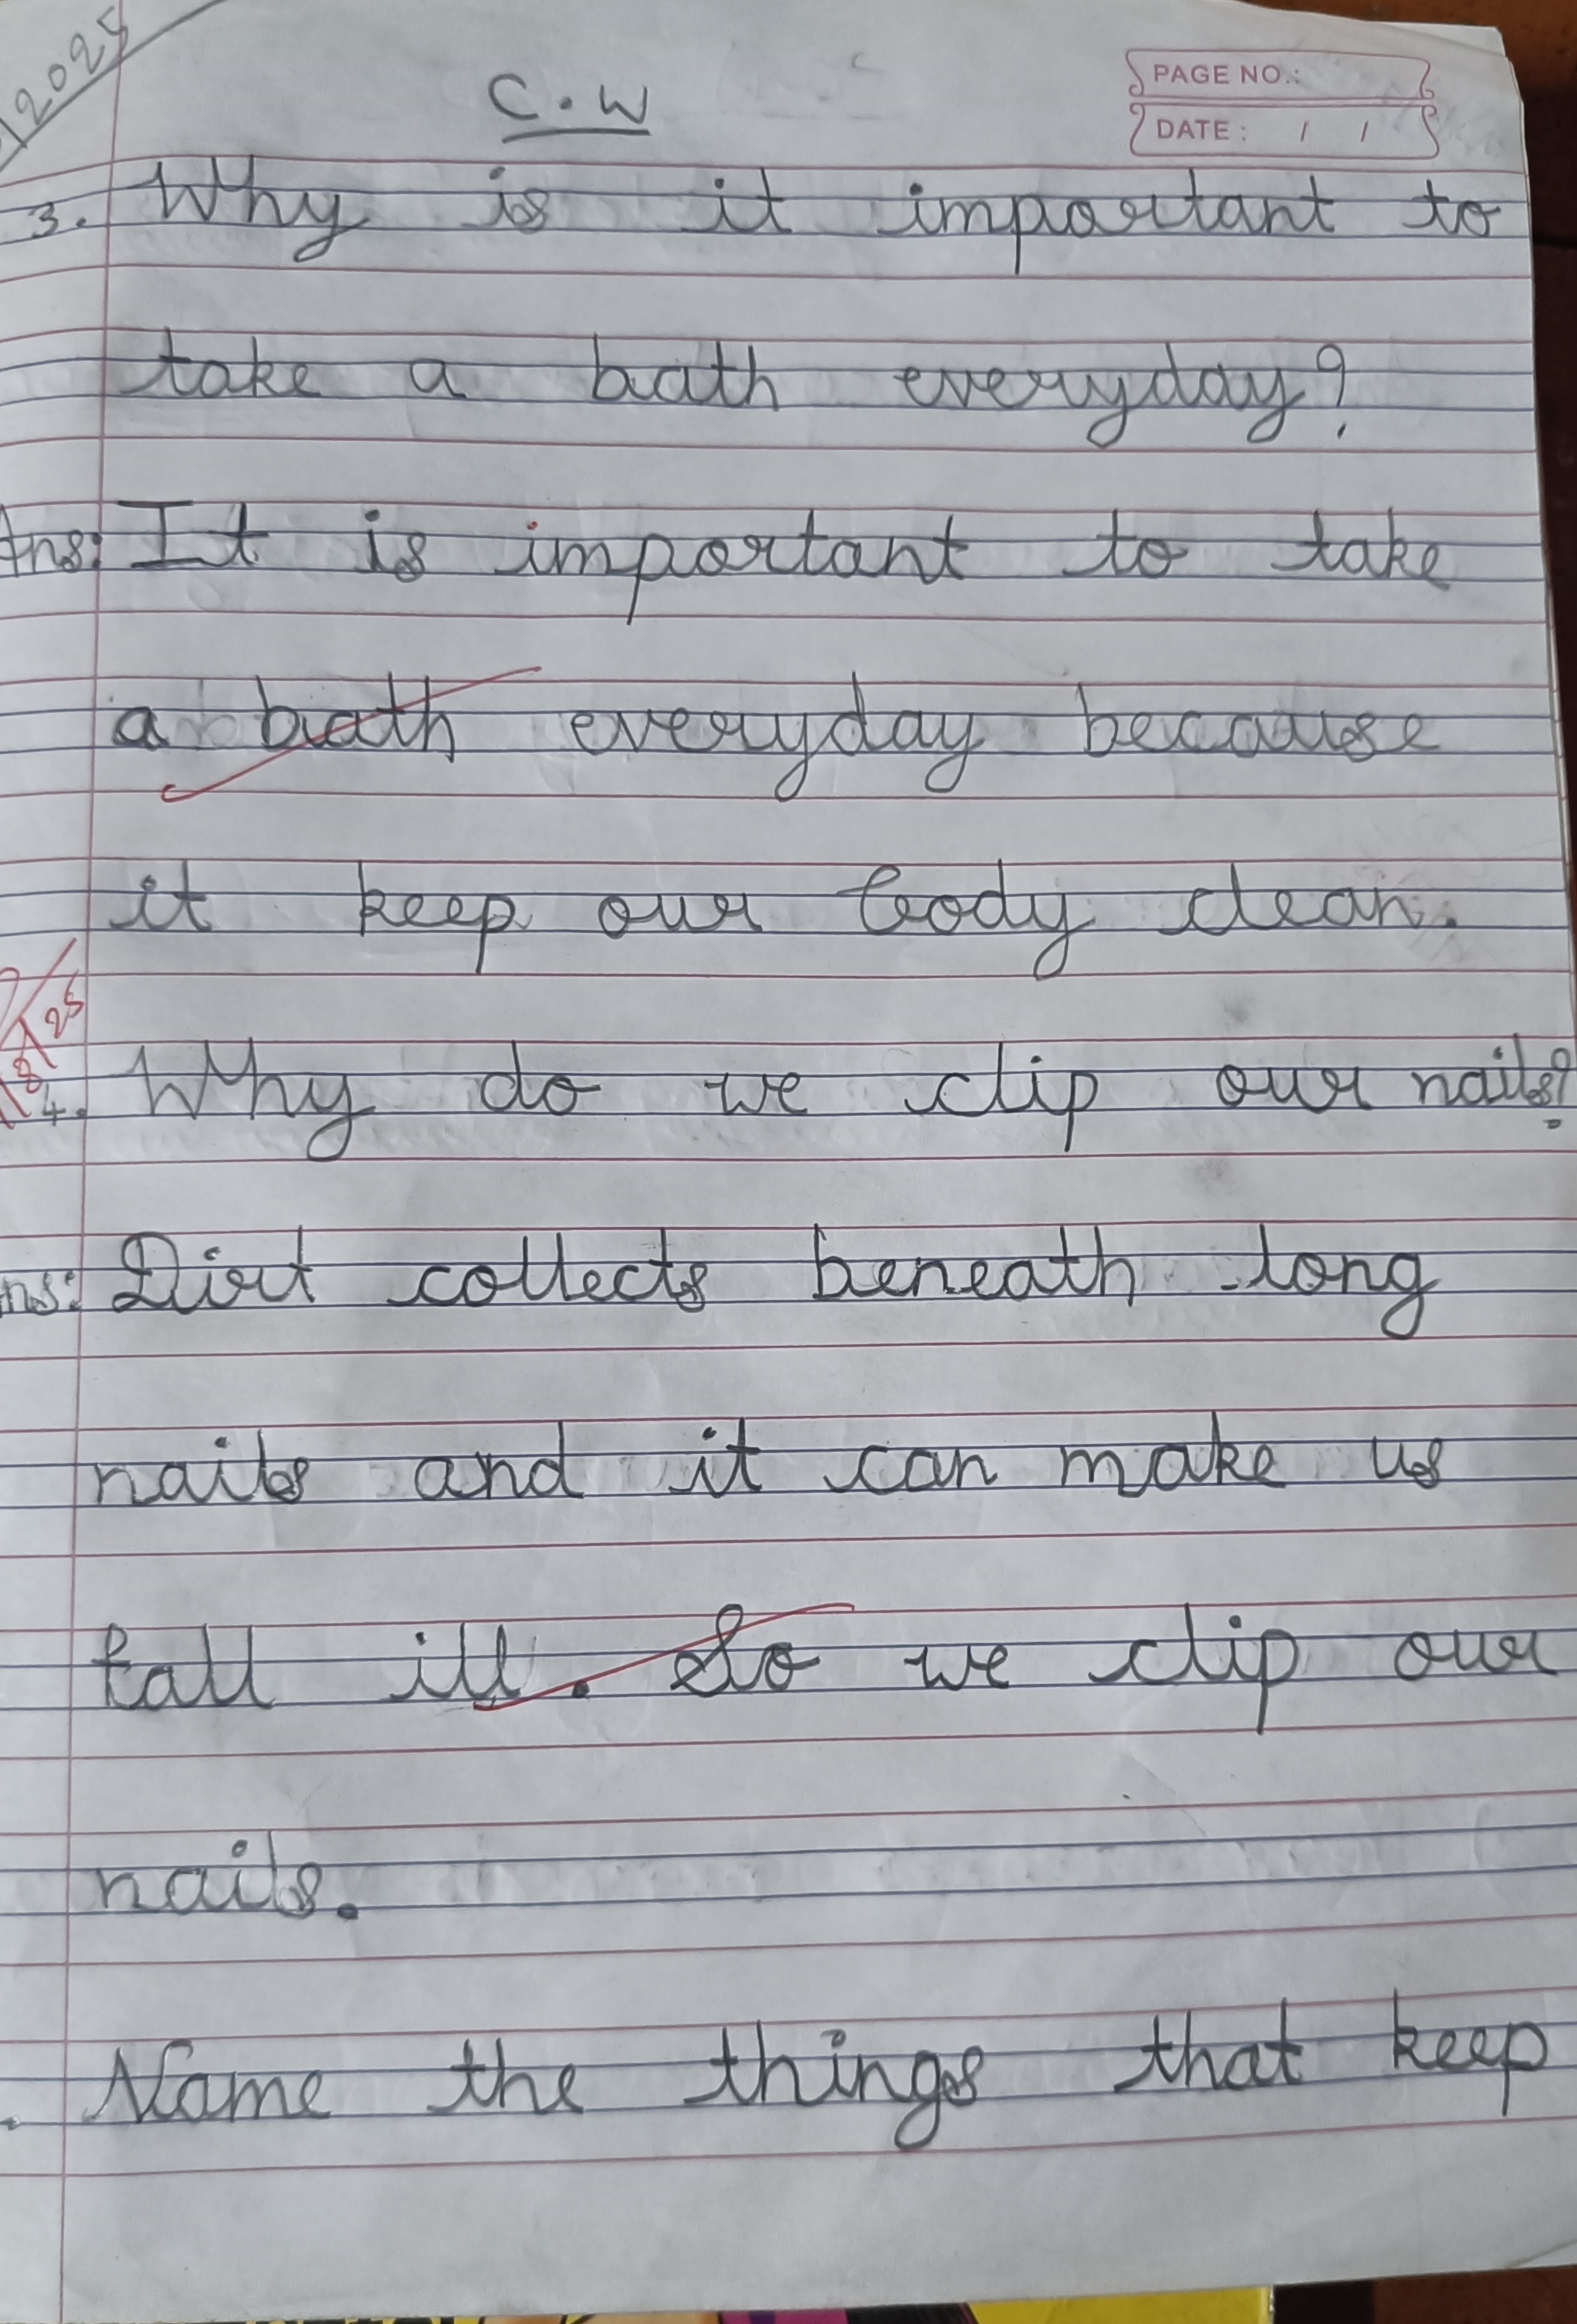 2025
C.W
PAGE NO.:
DATE: / /
3. Why is it important to
take a bath everyday?
Ans: It is important to take
a bath everyday because
it keep our body clean.
4. Why do we clip our nails?
ns: Dirt collects beneath long
nails and it can make us
fall ill. So we clip our
nails.
. Name the things that keep